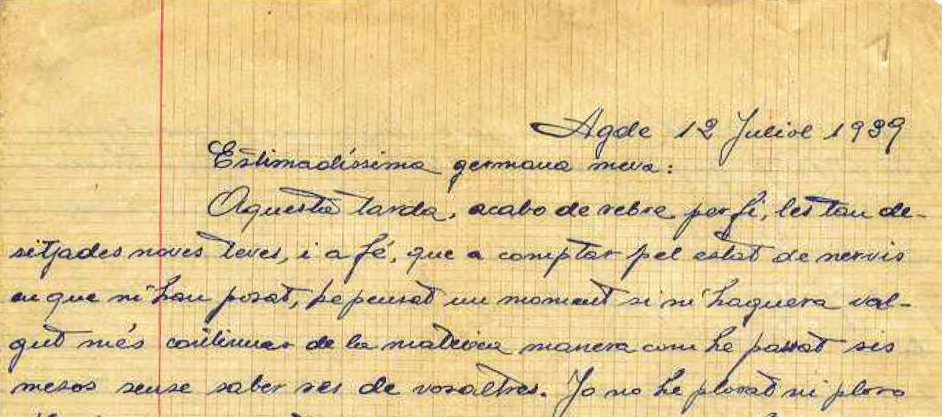 1
Agde 12 Juliol 1939
Estimadíssima germana meva:
Aquesta tarda, acabo de rebre per fi, les tan de-
sitjades noves teves, i a fé, que a comptar pel estat de nervis
en que m'han posat, he pensat un moment si m'haguera val-
gut més continuar de la mateixa manera com he passat sis
mesos sense saber res de vosaltres. Jo no he plorat ni ploro